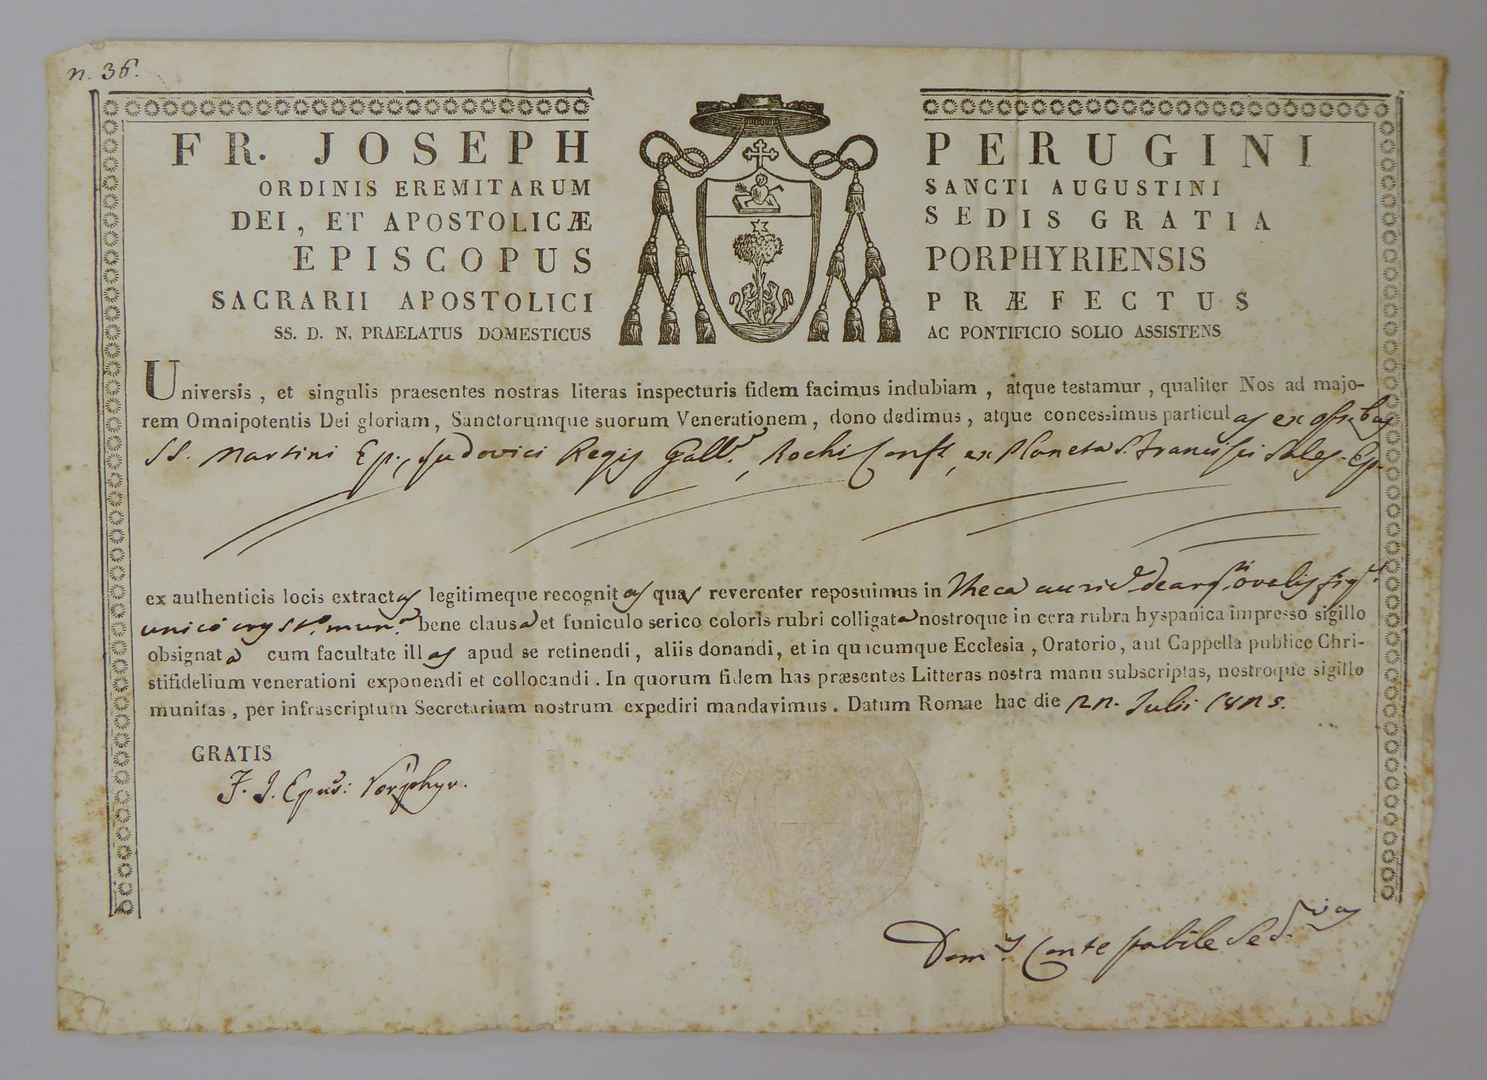 n. 36.
FR. JOSEPH PERUGINI
ORDINIS EREMITARUM SANCTI AUGUSTINI
DEI, ET APOSTOLICÆ SEDIS GRATIA
EPISCOPUS PORPHYRIENSIS
SACRARII APOSTOLICI PRÆFECTUS
SS. D. N. PRAELATUS DOMESTICUS AC PONTIFICIO SOLIO ASSISTENS
Universis, et singulis praesentes nostras literas inspecturis fidem facimus indubiam, atque testamur, qualiter Nos ad majo-
rem Omnipotentis Dei gloriam, Sanctorumque suorum Venerationem, dono dedimus, atque concessimus particulas ex ossibus
SS. Martini Ep., Ludovici Regis Gall., Rochi Conf., ex Planeta S. Francisci Sales. Ep.
ex authenticis locis extractas legitimeque recognitas quas reverenter reposuimus in Theca
unico cryst. mun. bene clausa et funiculo serico coloris rubri colligata nostroque in cera rubra hyspanica impresso sigillo
obsignata cum facultate illas apud se retinendi, aliis donandi, et in quicumque Ecclesia, Oratorio, aut Cappella publice Chri-
stifidelium venerationi exponendi et collocandi. In quorum fidem has præsentes Litteras nostra manu subscriptas, nostroque sigillo
munitas, per infrascriptum Secretarium nostrum expediri mandavimus. Datum Romae hac die 22. Julii 1825.
GRATIS
F. J. Epus: Porphyr.
Dom.s Contestabile